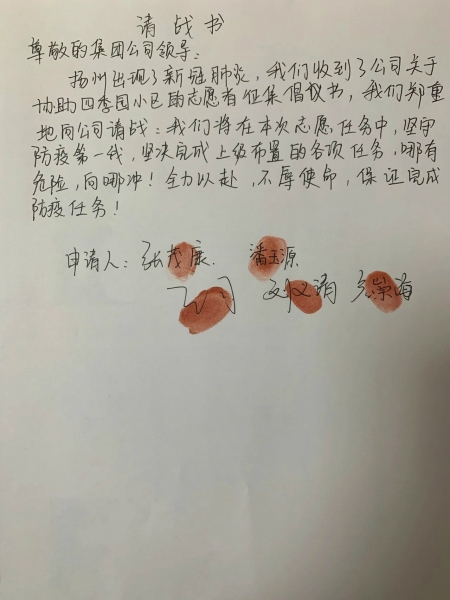 请战书
尊敬的集团公司领导：
扬州出现了新冠肺炎，我们收到了公司关于
协助四季园小区的志愿者征集倡议书，我们郑重
地向公司请战：我们将在本次志愿任务中，坚守
防疫第一线，坚决完成上级布置的各项任务，哪有
危险，向哪冲！全力以赴，不辱使命，保证完成
防疫任务！
申请人：张茂康 潘玉源